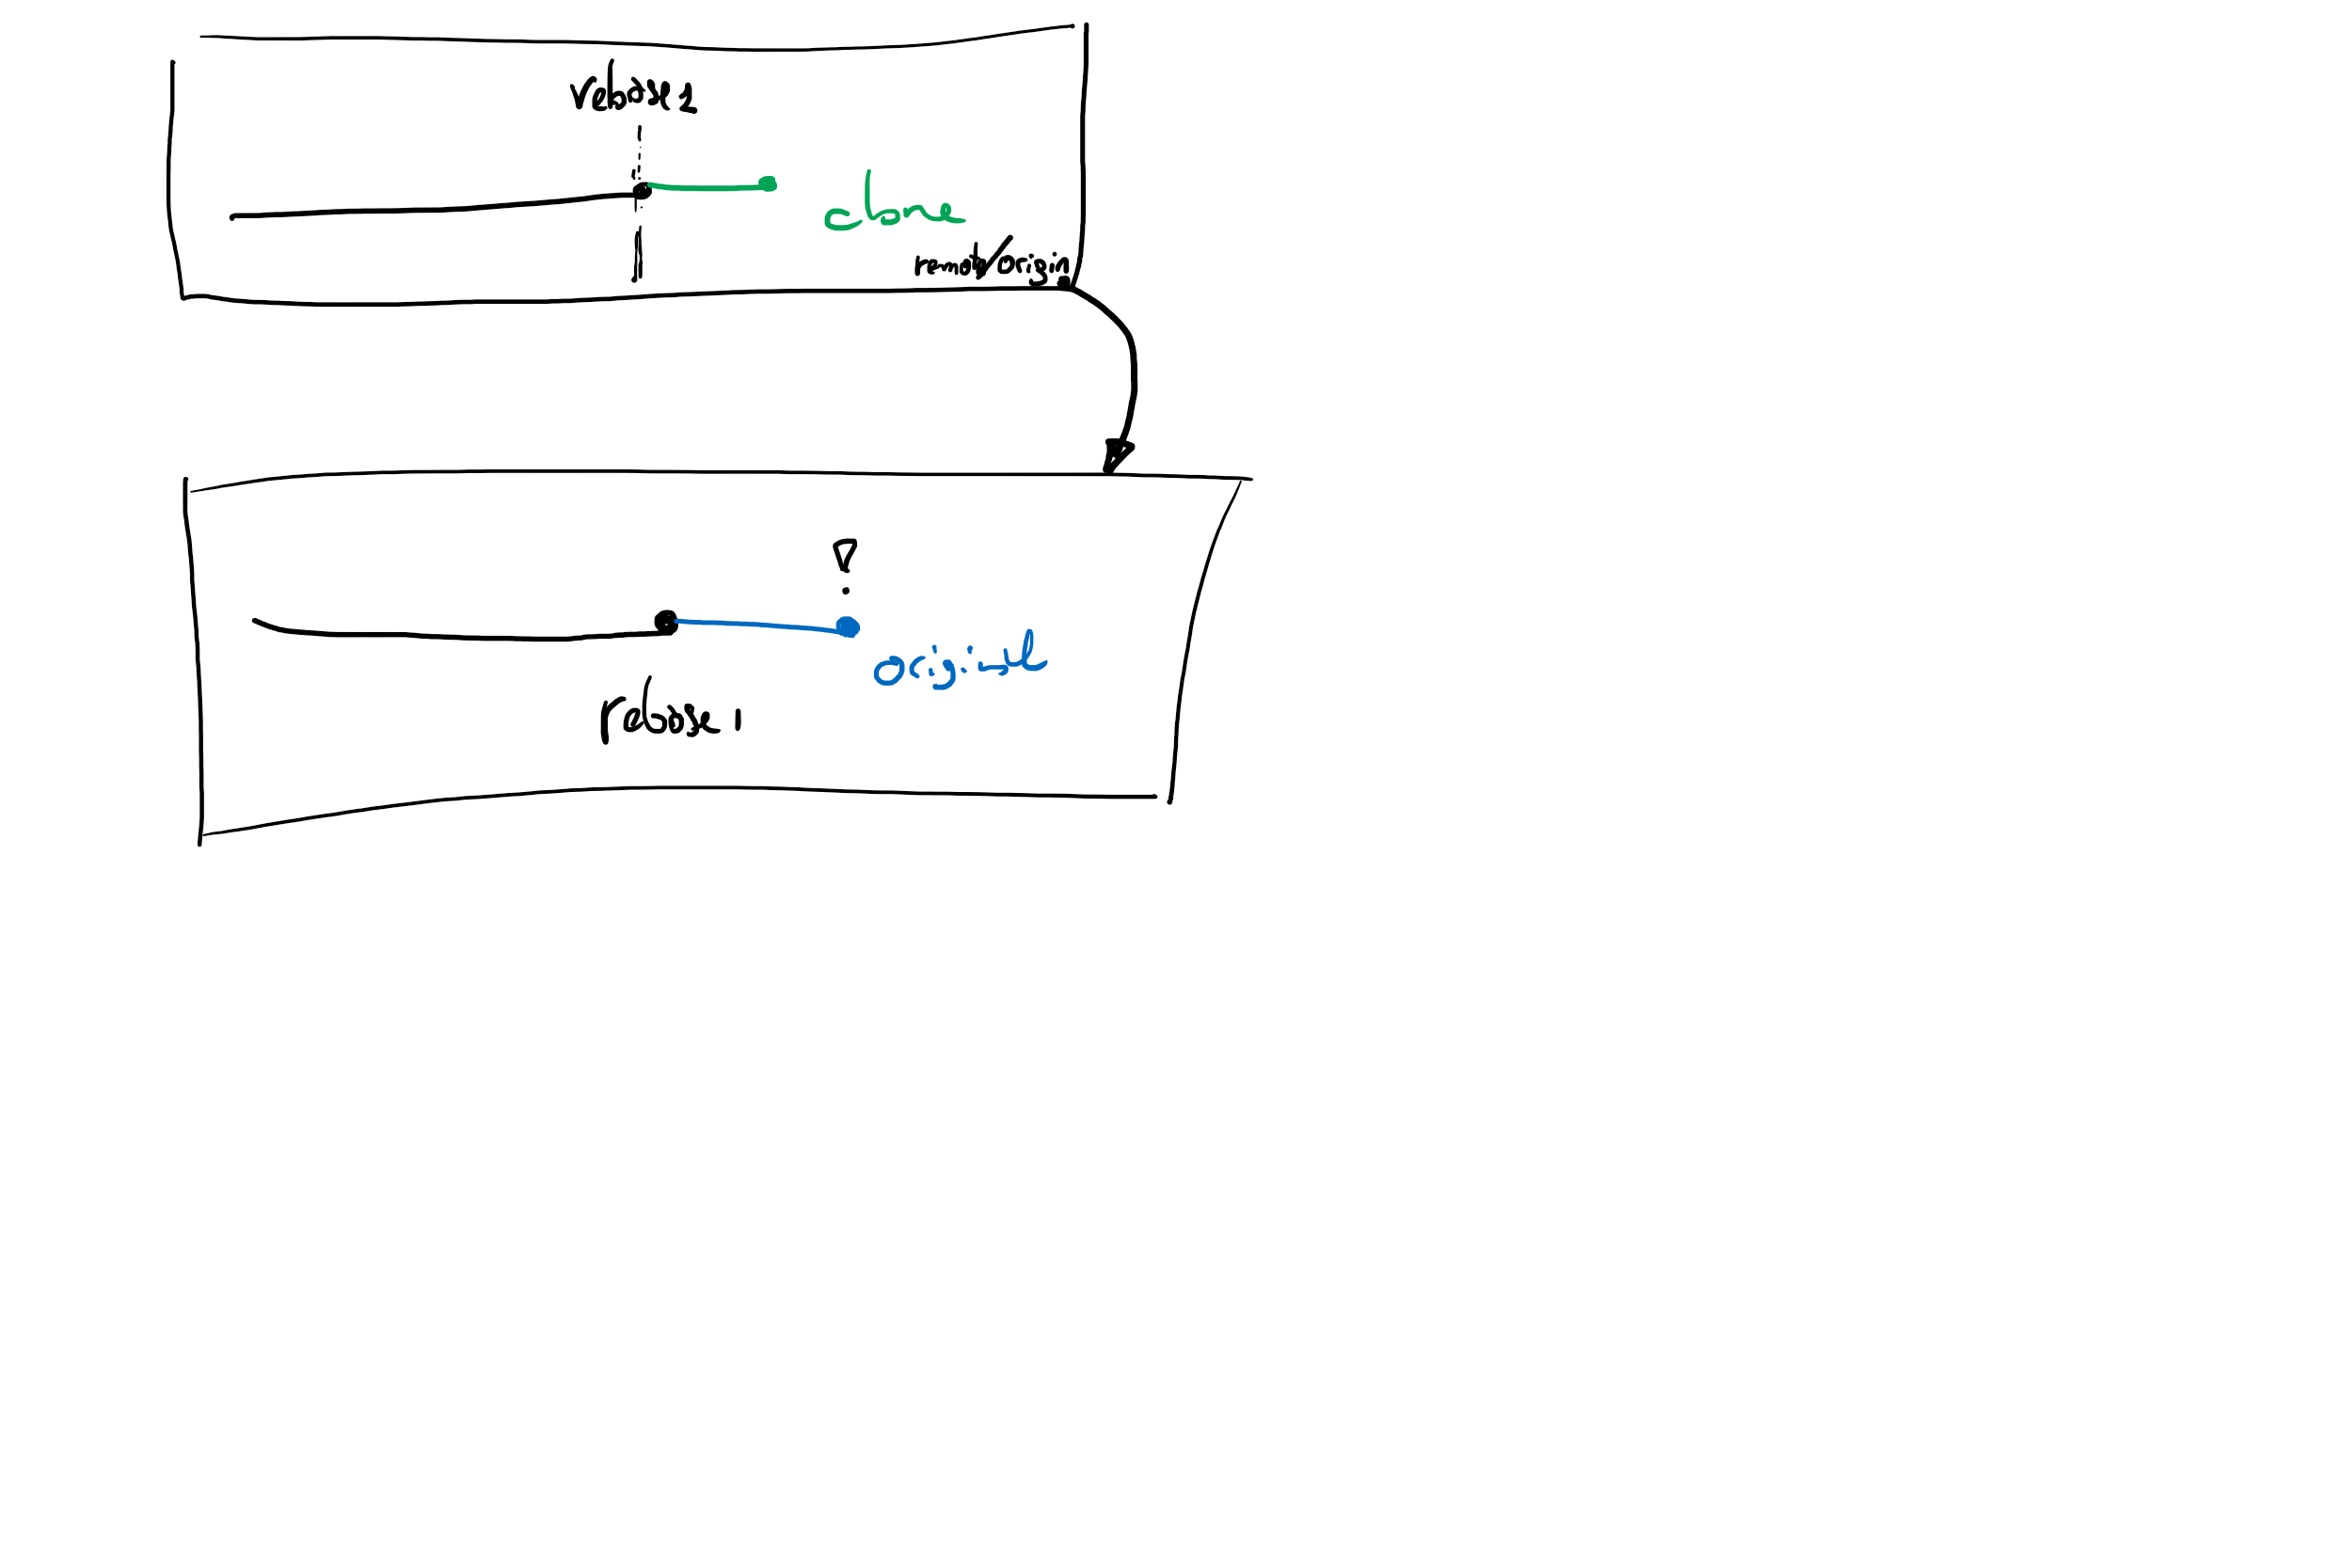 rebase2
clone
remote/origin
original
rebase 1